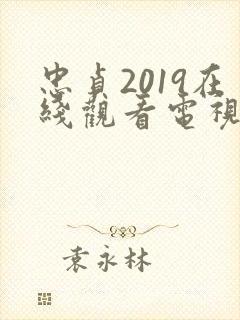 忠貞2019在
綫觀看電視
袁永林